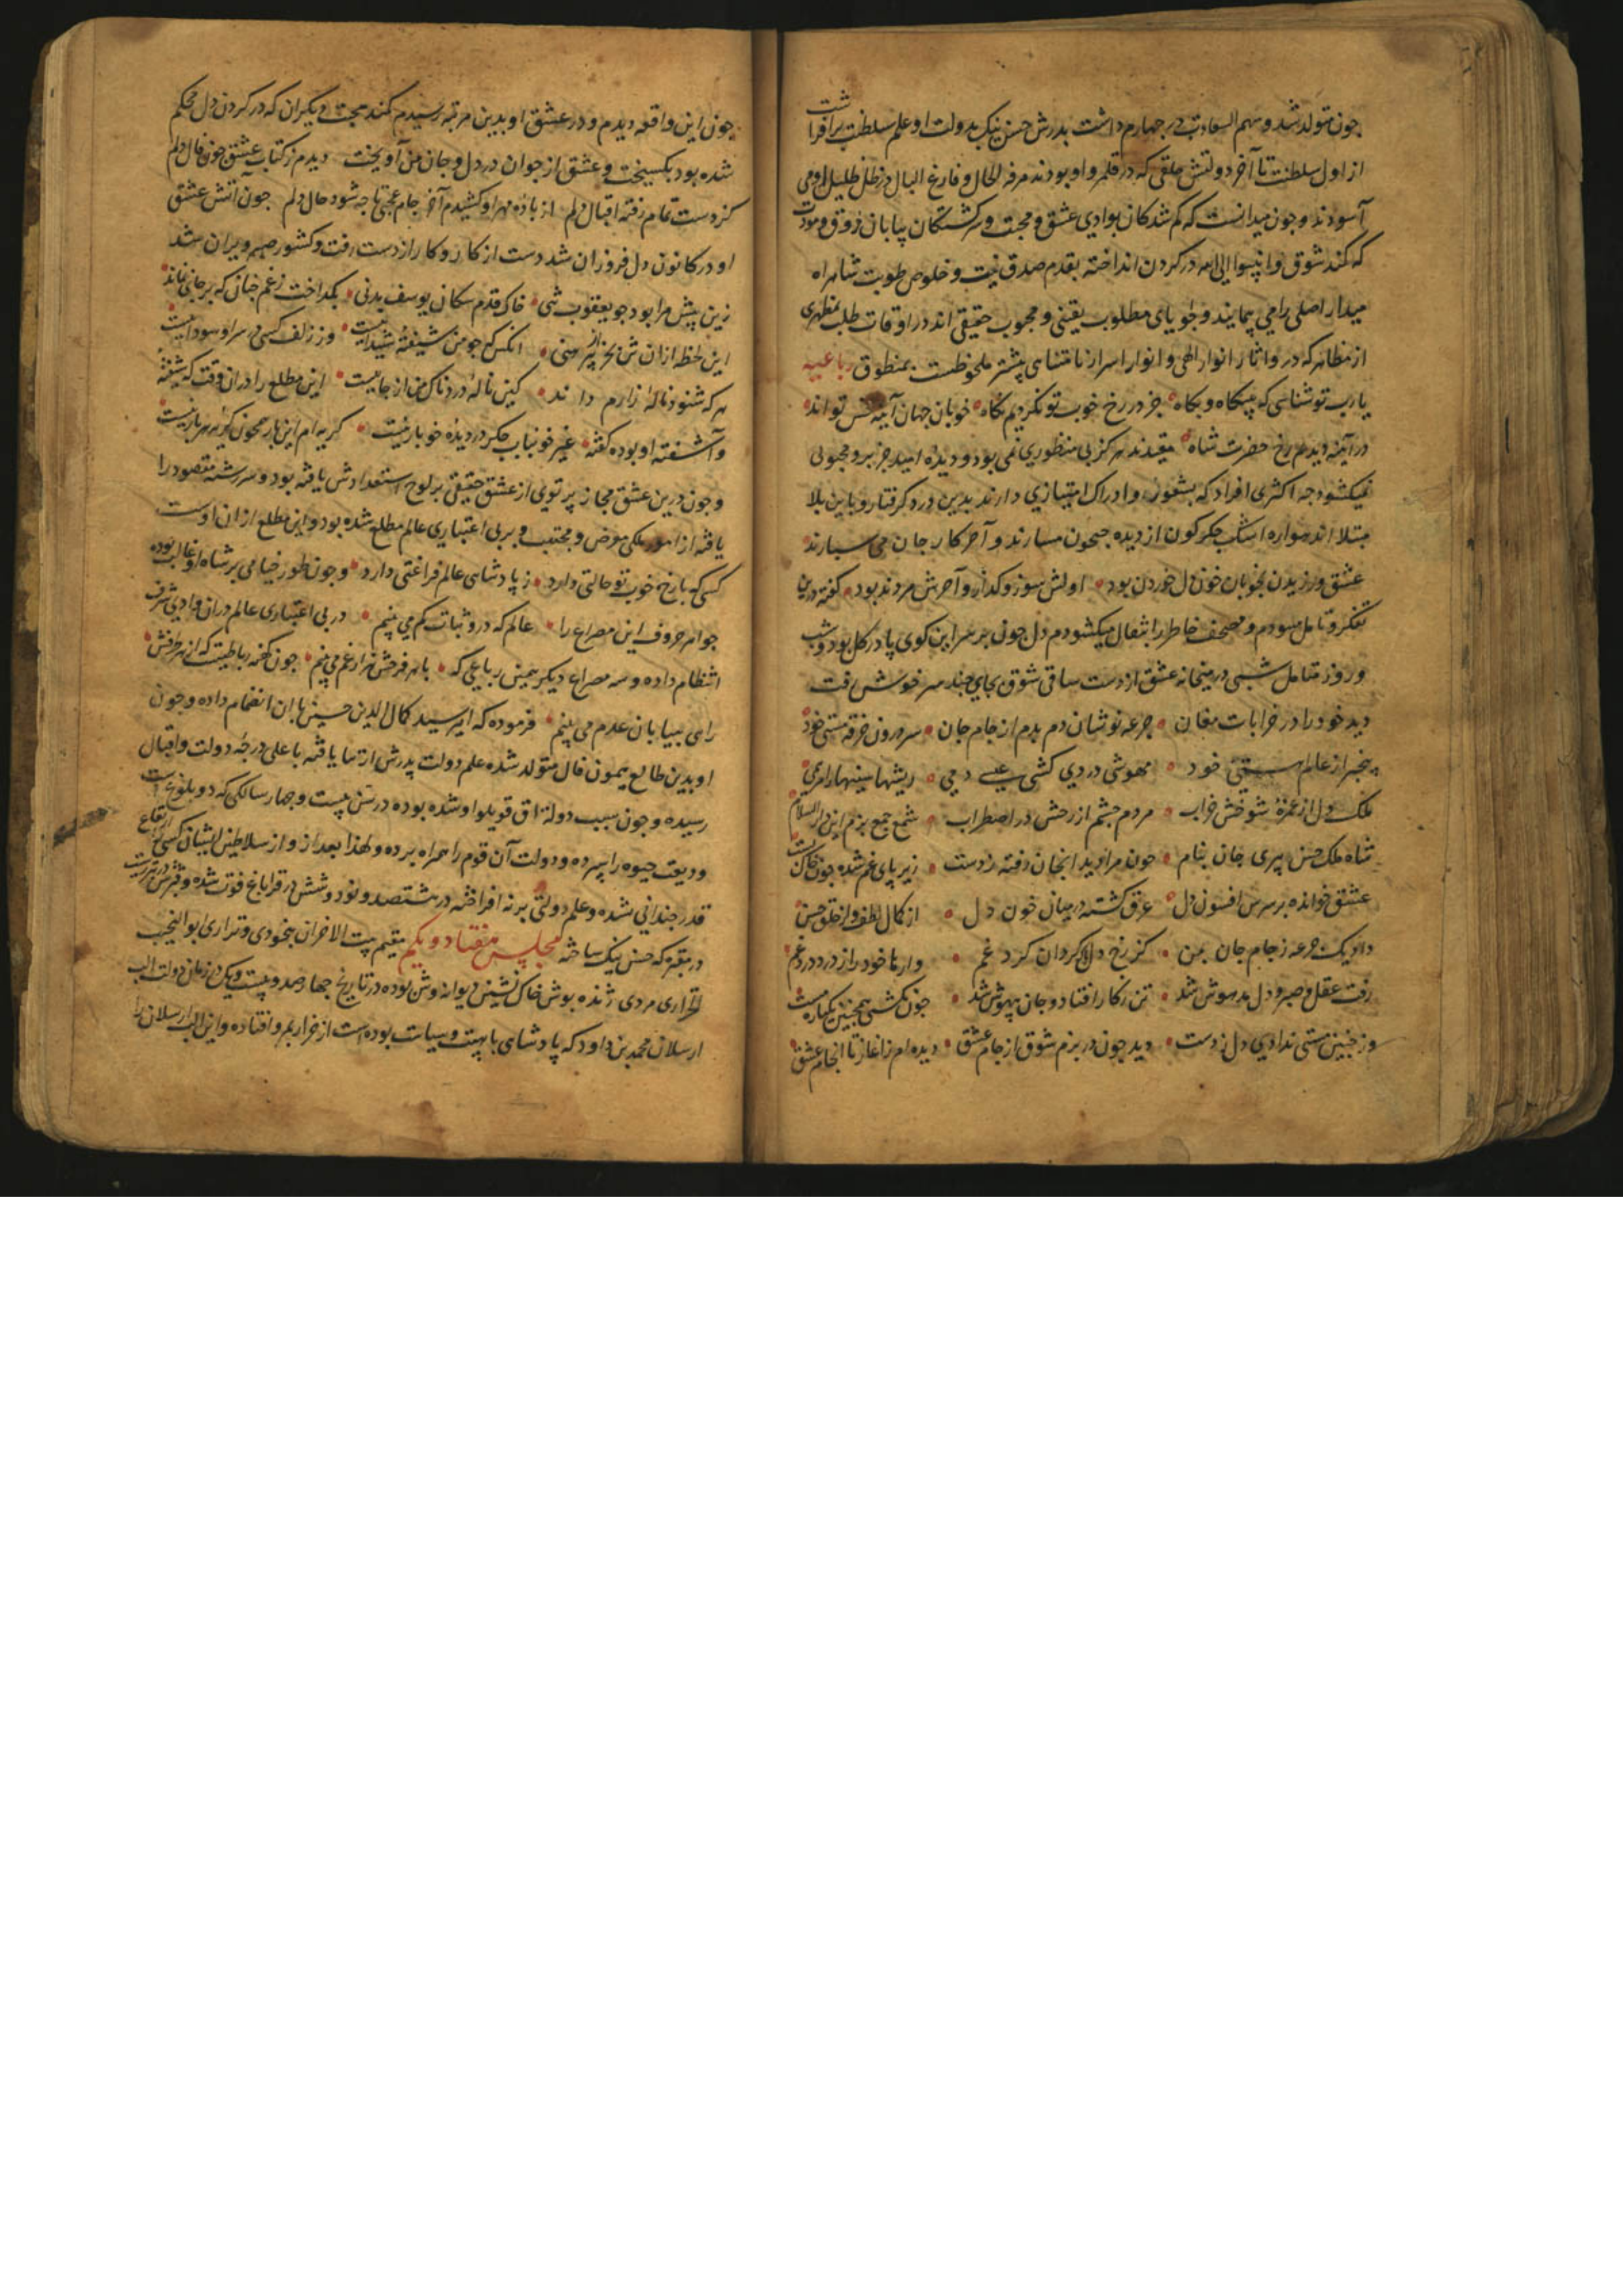 چون متولد شد و سهم السعادت در چهارم داشت پدرش حسن بیک بدولت او علم سلطنت برافراشت
از اول سلطنت تا آخر دولتش خلقی که در قلمرو او بودند مرفه الحال و فارغ البال در ظل ظلیل او می
آسودند و چون میدانست که کم شدکان بوادی عشق و محبت و سرکشتکان بیابان ذوق و مودت
که کند شوق وابتغوا الی الله در کردن انداخته بقدم صدق نیت و خلوص طویت شاهراه
میدار اصلی را می پیمایند و جویای مطلوب یقینی و محبوب حقیقی اند در اوقات طلب بمظهری
از مظاهر که درو اثار انوار الهی و انوار اسرار نامتناهی پیشتر ملحوظست بمنطوق رباعیه
یارب تو شناسی که بیکاه و بکاه جز در رخ خوب تو نکردیم نکاه خوبان جهان آینه حسن تو اند
در آینه دیدیم رخ حضرت شاه مقیدند هرکز بی منظوری نمی بود و دیده امید جز برو محبوبی
نمیکشود چه اکثری افراد که بشعور و ادراک امتیازی دارند بدین درد کرفتار و باین بلا
مبتلا اند همواره اشک جکرکون از دیده جیحون میبارند و آخر کار جان می سپارند
عشق ورزیدن بخوبان خون دل خوردن بود اولش سوز و کداز و آخرش مردن بود کفته درین
تفکر و تامل میبودم و مصحف خاطر را بتفال میکشودم دل چون بر سر این کوی پا در کل بود و شب
و روز متامل شبی در میخانه عشق از دست ساقی شوق بجای چند سر خوش رفت
دید خود را در خرابات مغان جرعه نوشان دم بدم از جام جان سر درون خرقه مستی خود
بیخبر از عالم هستی خود مهوشی دردی کشی عیسی دمی ریشها سینها را مرهمی
ملک دل از غمزه شوخش خراب مردم چشم از رخش در اضطراب شمع جمع بزم این دار السلام
شاه ملک حسن پیری جان بنام چون مرا دید انچنان رفته ز دست زیر پای غم شده چون خاک پست
عشق خوانده بر سرش افسون دل غرق کشته در میان خون دل از کمال لطف و از خلق حسن
داد یک جرعه ز جام جان بمن کز رخ دل پاک کردان کرد غم وارها خود را از درد و درد غم
رفت عقل و صبر و دل مدهوش شد تن ز کار افتاد و جان بیهوش شد چون نکشتی همچنین یکباره مست
وز چنین مستی ندادی دل ز دست دید چون در بزم شوق از جام عشق دیده ام ز اغاز تا انجام عشق
چون این واقعه دیدم و در عشق او بدین مرتبه رسیدم کمند محبت دیکران که در کردن دل محکم
شده بود بکسیخت و عشق از جوان در دل و جان من آویخت دیدم ز کتاب عشق چون فال دلم
کز دست تمام رفته اقبال دلم از باده مهر او کشیدم آخر جام عجبی تا چه شود حال دلم چون آتش عشق
او در کانون دل فروزان شد دست از کار و کار از دست رفت و کشور صبر ویران شد
زین پیش مرا بود چو یعقوب شبی خاک قدم سکان یوسف بدنی بکداخت ز غم چنان که بر جای نماند
این لحظه ازان شی بجز پیرهنی انکس که چو من شیفته شیداییست وز زلف کسی در سر او سوداییست
هر که شنود ناله زارم داند کین ناله دردناک من از جاییست این مطلع را دران وقت که شیفته
و آشفته او بوده کفته غیر خونباب جکر در دیده خونبار نیست کریه ام این بار همچون کریه هر بار نیست
و چون درین عشق مجاز پرتوی از عشق حقیقی بر لوح استعدادش یافته بود و سررشته مقصود را
یافته از امور ملکی معرض و مجتنب و بر بی اعتباری عالم مطلع شده بود و این مطلع ازان اوست
کسی که با رخ خوب تو حالتی دارد ز پادشاهی عالم فراغتی دارد و چون طور خیامی بر شاه او غالب بوده
جواهر حروف این مصراع را عالم که درو ثبات کم می بینم در بی اعتباری عالم دران وادی شرف
انتظام داده و سه مصراع دیکر همین رباعی که با هر فرحش هزار غم می بینم چون کهنه رباطیست که از هر طرفش
راهی ببیابان عدم می بینم فرموده که امیر سید کمال الدین حسین بان انضمام داده و چون
او بدین طالع میمون فال متولد شده علم دولت پدرش ارتقا یافته باعلی درجه دولت و اقبال
رسیده و چون سبب دولت اق قویلو او شده بوده در سن بیست و چهار سالکی که دو بلوغست
ودیعت حیوه را سپرده و دولت آن قوم را همراه برده و لهذا بعد از و از سلاطین ایشان کسی را ارتفاع
قدر چندانی نشده و علم دولتی بر نه افراخته در هشتصد و نود و شش در قراباغ فوت شده و قبرش در تبریزست
در مقبره که حسن بیک ساخته مجلس هفتاد و یکم مقیم بیت الاخزان بیخودی و بی قراری ابو النجیب
اقراری مردی ژنده پوش خاک نشین دیوانه وش بوده در تاریخ چهارصد و بیست و یک در زمان دولت الب
ارسلان محمد بن داود که پادشاهی با هیبت و سیاست بوده است از خرار بمرو افتاده و این الب ارسلان را